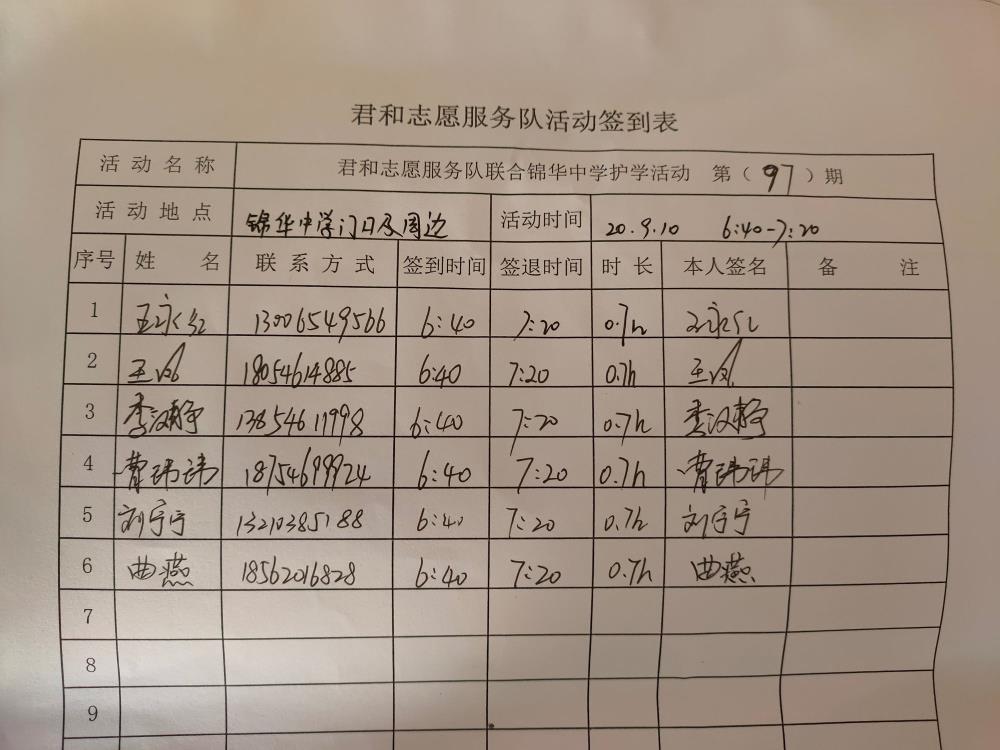 君和志愿服务队活动签到表
活动名称 君和志愿服务队联合锦华中学护学活动 第（97）期
活动地点 锦华中学门口及周边 活动时间 20.9.10 6:40-7:20
序号 姓名 联系方式 签到时间 签退时间 时长 本人签名 备注
1 王永红 13006549566 6:40 7:20 0.7h 王永红
2 王凤 18054614885 6:40 7:20 0.7h 王凤
3 李汉静 13854611998 6:40 7:20 0.7h 李汉静
4 曹玮玮 18754699924 6:40 7:20 0.7h 曹玮玮
5 刘宁宁 13210385188 6:40 7:20 0.7h 刘宁宁
6 曲燕 18562016828 6:40 7:20 0.7h 曲燕
7
8
9